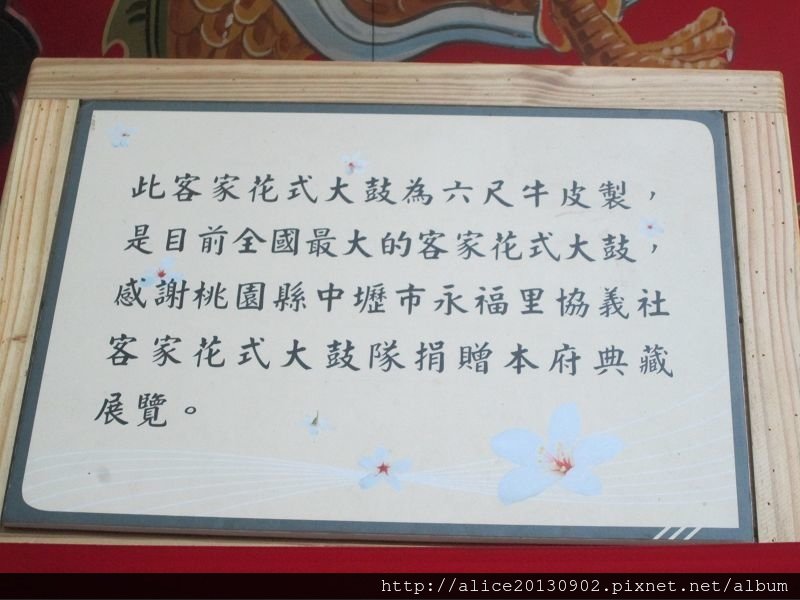 此客家花式大鼓為六尺牛皮製，
是目前全國最大的客家花式大鼓，
感謝桃園縣中壢市永福里協義社
客家花式大鼓隊捐贈本府典藏
展覽。
http://alice20130902.pixnet.net/album